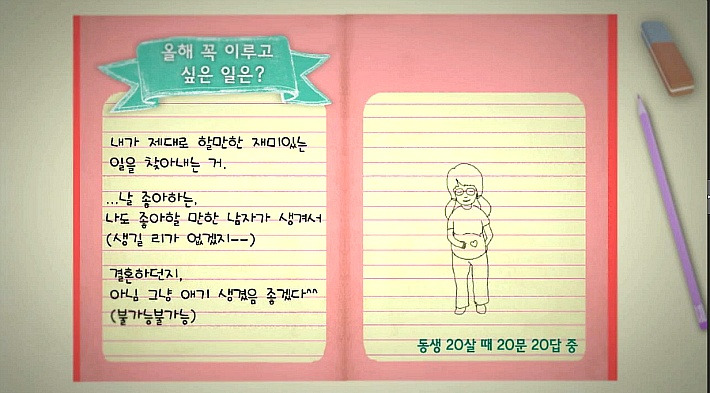 올해 꼭 이루고
싶은 일은?
내가 제대로 할만한 재미있는
일을 찾아내는 거.
...날 좋아하는,
나도 좋아할 만한 남자가 생겨서
(생길 리가 없겠지--)
결혼하던지,
아님 그냥 애기 생겼음 좋겠다^^
(불가능불가능)
동생 20살 때 20문 20답 중